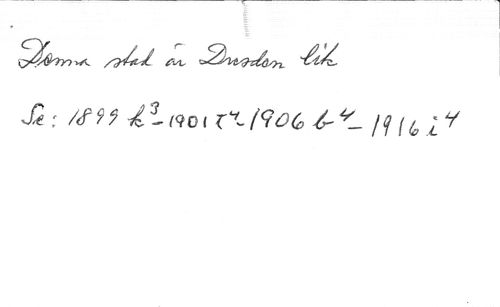 Denna stad är Dresden lik
Se: 1899 k³ – 1901 t⁴ – 1906 b⁴ – 1916 i⁴